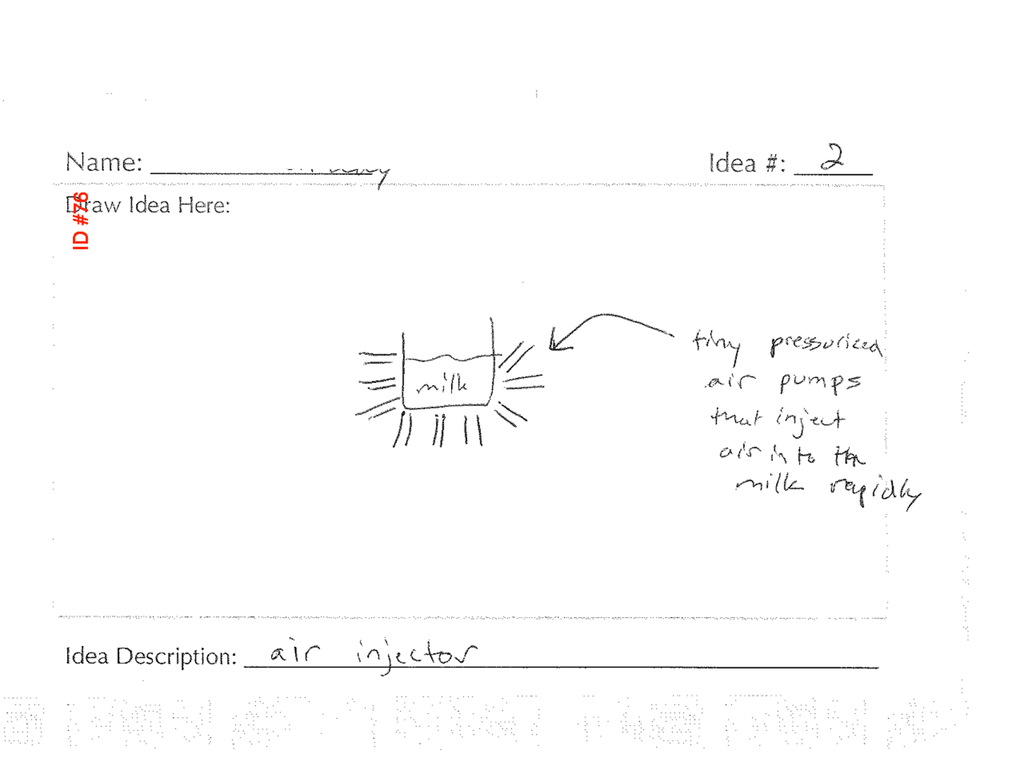 Name:
Idea #: 2
ID #76
Draw Idea Here:
milk
tiny pressurized
air pumps
that inject
air into the
milk rapidly
Idea Description: air injector